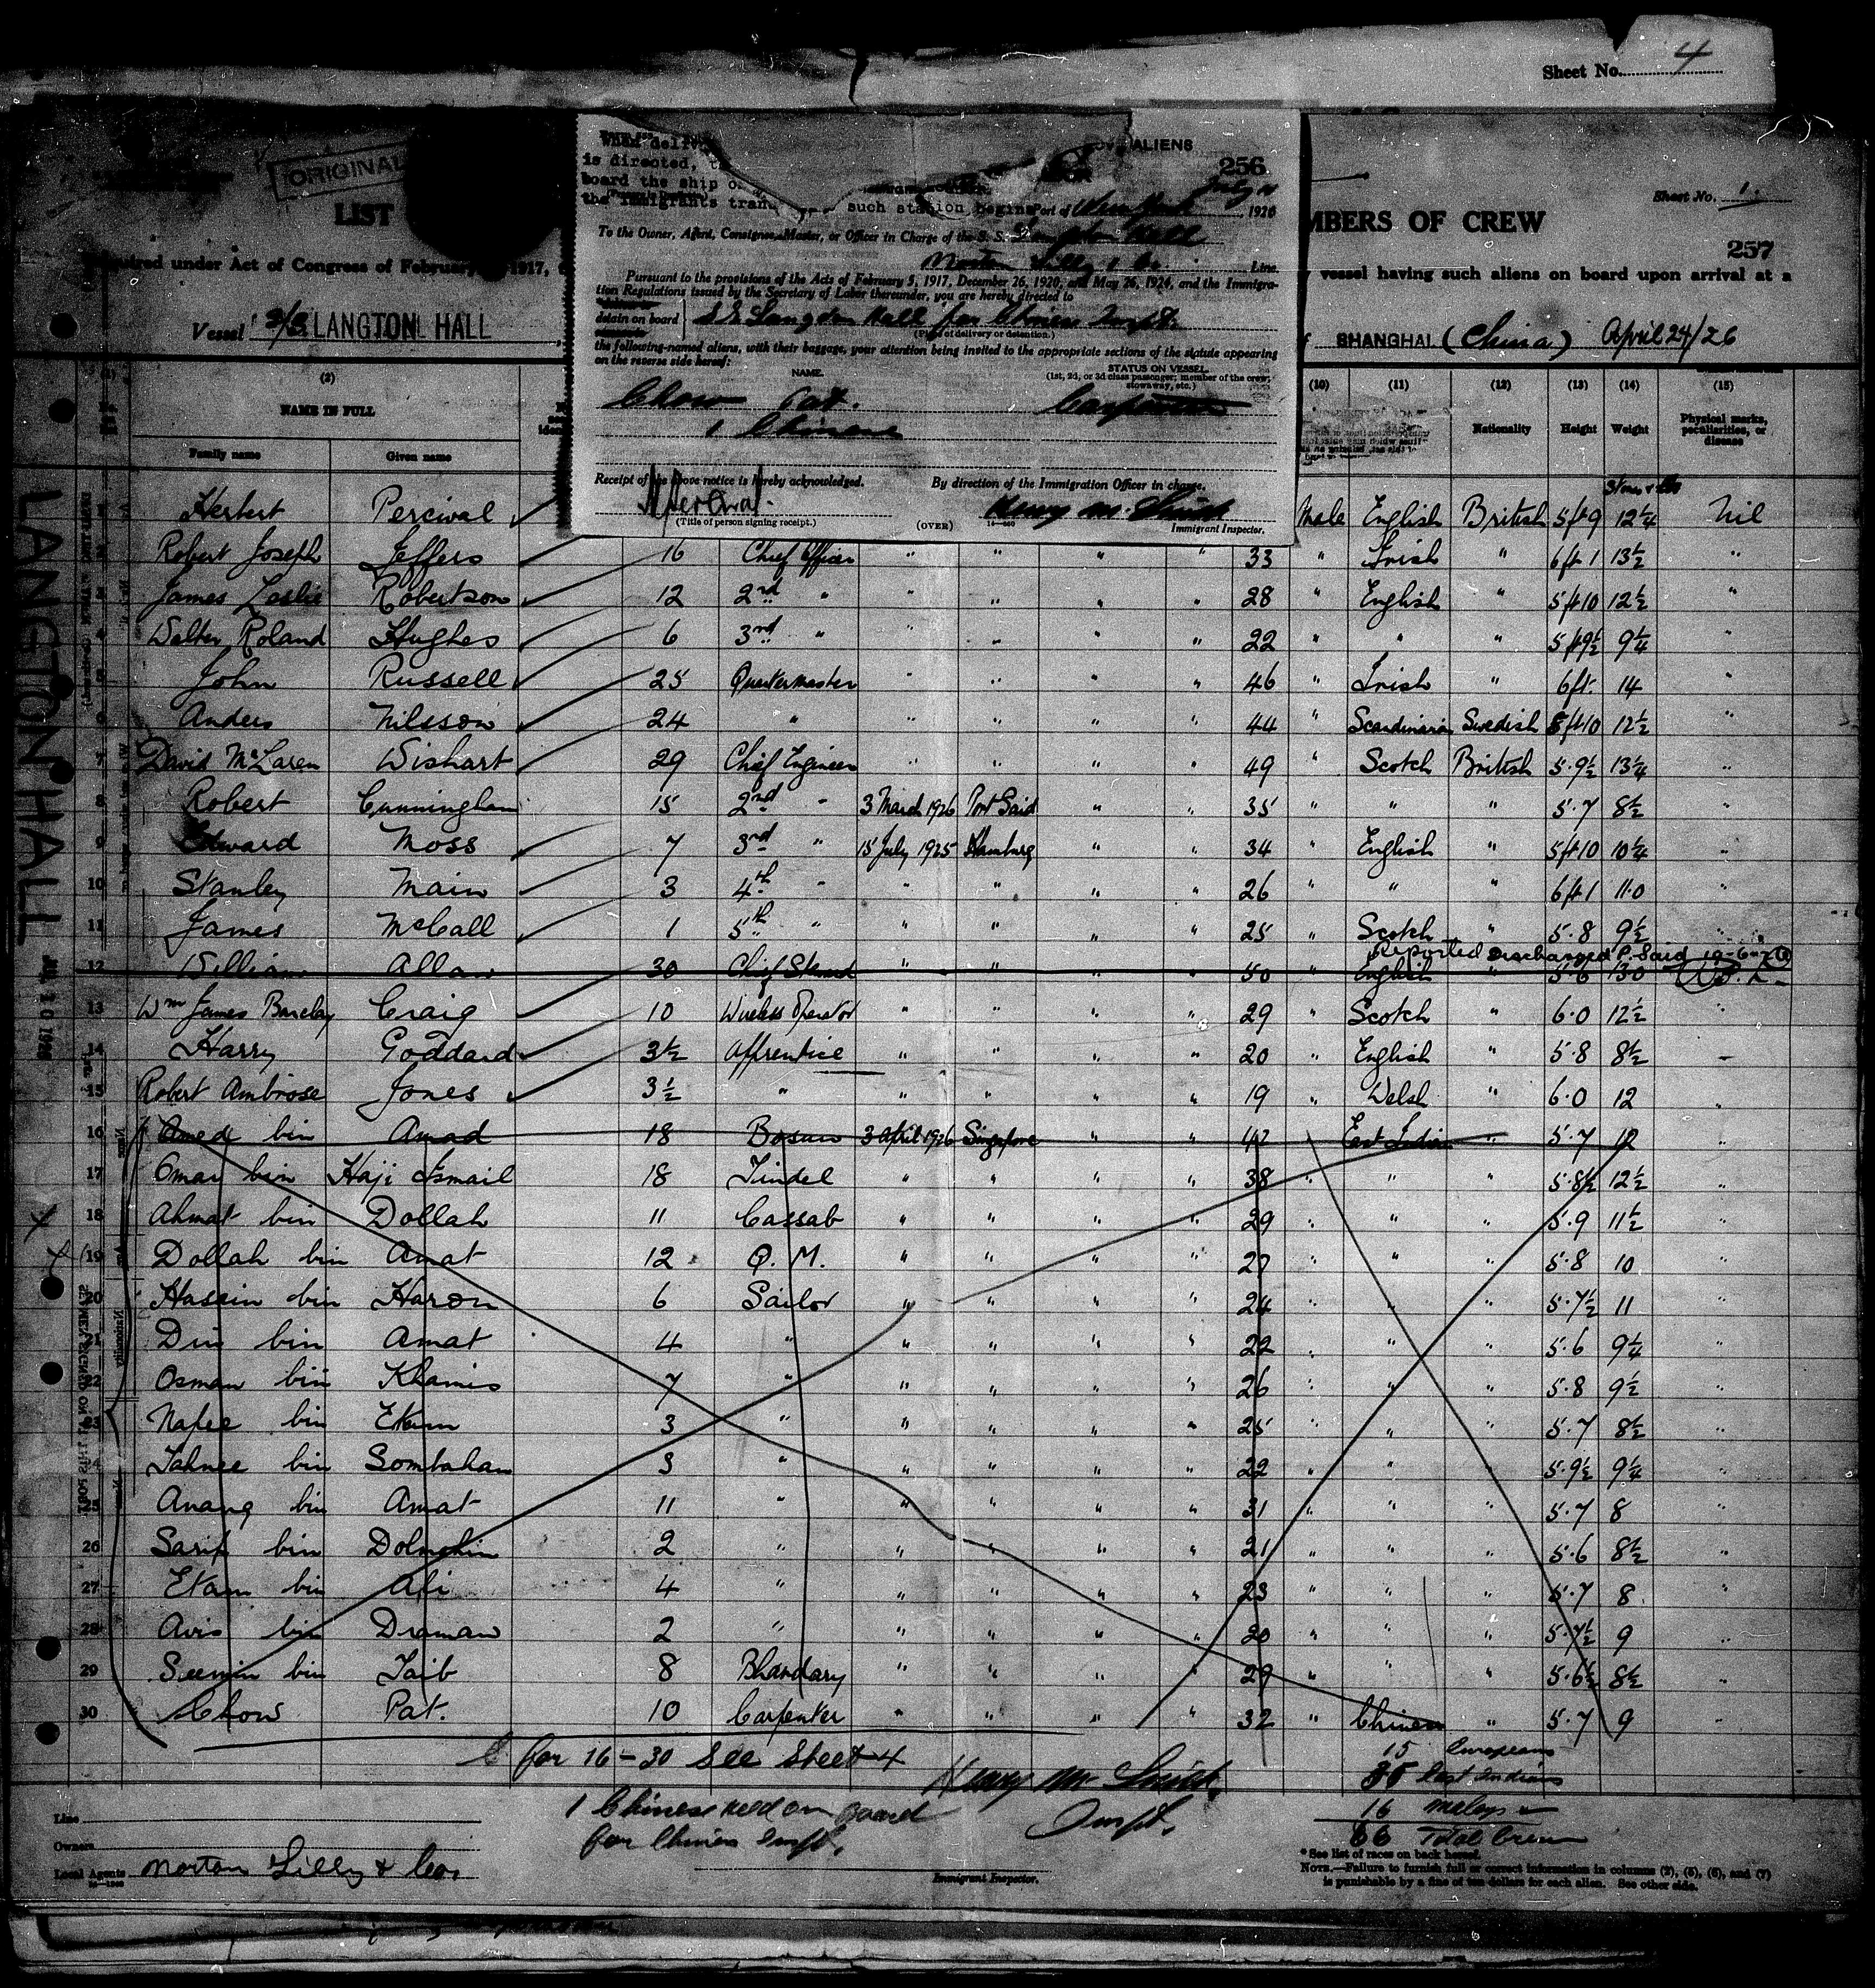 Sheet No. 4
ORIGINAL
LIST
MBERS OF CREW
Sheet No. 1.
257
required under Act of Congress of February 1917,
vessel having such aliens on board upon arrival at a
Vessel S/S LANGTON HALL
SHANGHAI (China) April 24/26
When deliv
is directed,
board the ship o
the immigrants tran such station begins
ALIENS
256
Port of New York 1926
To the Owner, Agent, Consignee, Master, or Officer in Charge of the S. S. Langton Hall
Norton Lilly & Co. Line.
Pursuant to the provisions of the Acts of February 5, 1917, December 26, 1920, and May 26, 1924, and the Immigra-
tion Regulations issued by the Secretary of Labor thereunder, you are hereby directed to
detain on board S.S. Langdon Hall for Chinese Inspt.
(Place of delivery or detention.)
the following-named aliens, with their baggage, your attention being invited to the appropriate sections of the statute appearing
on the reverse side hereof:
NAME. STATUS ON VESSEL
(1st, 2d, or 3d class passenger; member of the crew;
stowaway, etc.)
Chow Pat. Carpenter
1 Chinese
Receipt of the above notice is hereby acknowledged. By direction of the Immigration Officer in charge.
H Percival. Henry M. Smith
(Title of person signing receipt.) (OVER) Immigrant Inspector.
(2) (10) (11) (12) (13) (14) (15)
NAME IN FULL Nationality Height Weight Physical marks, peculiarities, or disease
Family name Given name
LANGTON HALL
Herbert Percival Male English British 5 ft 9 12¼ Nil
2 Robert Joseph Jeffers 16 Chief Officer " " " " 33 " Irish " 6 ft 1 13½ "
3 James Leslie Robertson 12 2nd " " " " " 28 " English " 5 ft 10 12½ "
4 Walter Roland Hughes 6 3rd " " " " " 22 " " " 5 ft 9½ 9¼ "
5 John Russell 25 Quartermaster " " " " 46 " Irish " 6 ft. 14 "
6 Anders Nilsson 24 " " " " " 44 " Scandinavia Swedish 5 ft 10 12½ "
7 David McLaren Wishart 29 Chief Engineer " " " " 49 " Scotch British 5.9½ 13¼ "
8 Robert Cunningham 15 2nd " 3 March 1926 Port Said " " 35 " " " 5.7 8½ "
9 Edward Moss 7 3rd " 15 July 1925 Hamburg " " 34 " English " 5 ft 10 10¼ "
10 Stanley Main 3 4th " " " " " 26 " " " 6 ft 1 11.0 "
11 James McCall 1 5th " " " " " 25 " Scotch " 5.8 9½ "
Reported Discharged P. Said 19-6-26
12 William Allan 30 Chief Steward " " " " 50 English 5.6 13.0
13 Wm James Barclay Craig 10 Wireless Operator " " " " 29 " Scotch " 6.0 12½ "
14 Harry Goddard 3½ Apprentice " " " " 20 " English " 5.8 8½ "
15 Robert Ambrose Jones 3½ " " " " " 19 " Welsh " 6.0 12 "
16 Amed bin Amad 18 Bosun 3 April 1926 Singapore " " 42 East Indian " 5.7 12
17 Omar bin Haji Ismail 18 Tindel " " " " 38 " " " 5.8½ 12½ "
18 Ahmat bin Dollah 11 Cassab " " " " 29 " " " 5.9 11½ "
19 Dollah bin Amat 12 Q. M. " " " " 27 " " " 5.8 10 "
20 Hassin bin Haron 6 Sailor " " " " 24 " " " 5.7½ 11 "
21 Din bin Amat 4 " " " " " 22 " " " 5.6 9¼ "
22 Osman bin Khamis 7 " " " " " 26 " " " 5.8 9½ "
23 Napee bin Etam 3 " " " " " 25 " " " 5.7 8½ "
24 Tahnee bin Sombahan 3 " " " " " 22 " " " 5.9½ 9¼ "
25 Anang bin Amat 11 " " " " " 31 " " " 5.7 8 "
26 Sarip bin Dolmohin 2 " " " " " 21 " " " 5.6 8½ "
27 Etam bin Ali 4 " " " " " 23 " " " 5.7 8 "
28 Avis bin Draman 2 " " " " " 20 " " " 5.7½ 9 "
29 Seemin bin Taib 8 Bhandary " " " " 29 " " " 5.6½ 8½ "
30 Chow Pat. 10 Carpenter " " " " 32 " Chinese " 5.7 9 "
for 16-30 see Sheet 4
Henry M. Smith
Inspt.
1 Chinese held on board
for Chinese Inspt.
15 Europeans
35 East Indians
16 Malays
66 Total Crew
Line
Owners
Local Agents Norton Lilly & Co.
Immigrant Inspector.
* See list of races on back hereof.
NOTE.—Failure to furnish full or correct information in columns (2), (5), (6), and (7)
is punishable by a fine of ten dollars for each alien. See other side.